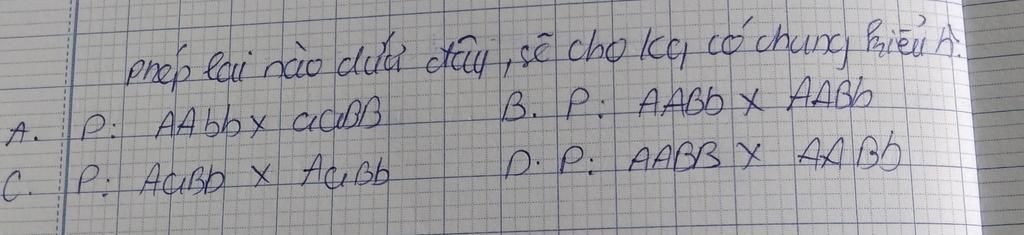 phép lai nào dưới đây, sẽ cho kq có chung kiểu h.
A. P: AAbb x aaBB B. P: AABb x AABb
C. P: AaBb x AaBb D. P: AABB x AABb